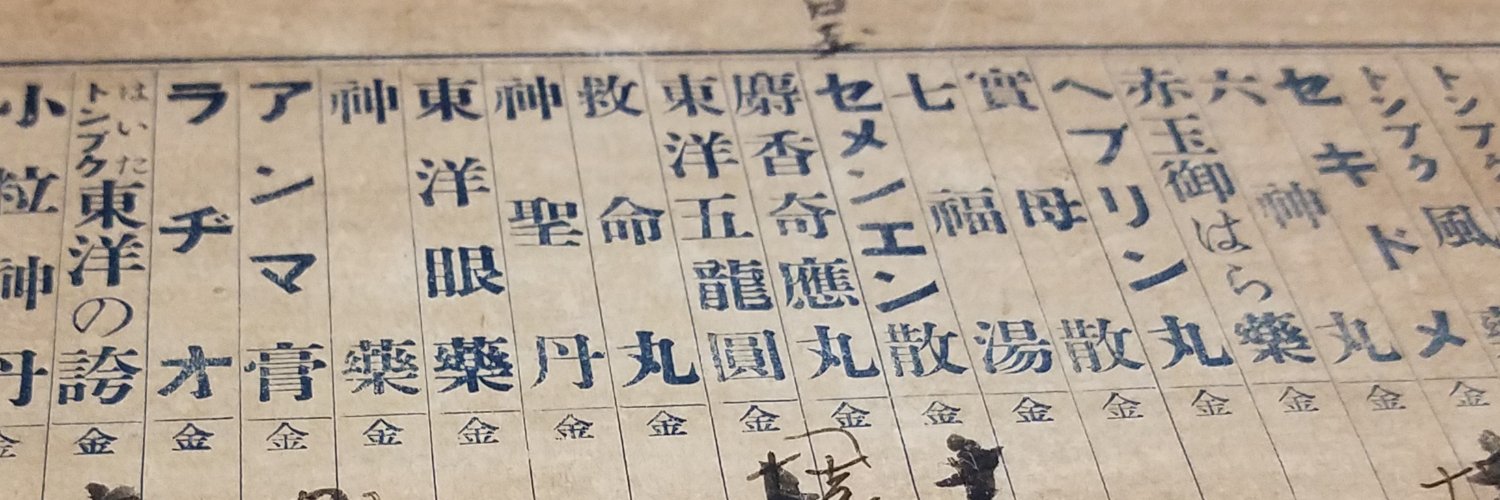 トンプク
トンプク風藥
セキドメ
六神丸
赤玉御はら藥
ヘブリン丸
實母散
七福湯
セメンエン散
麝香奇應丸
東洋五龍圓
救命丸
神聖丹
東洋眼藥
神藥
アンマ膏
ラヂオ
はいたトンプク東洋の誇
小粒神丹
金 金 金 金 金 金 金 金 金 金 金 金 金 金 金 金 金